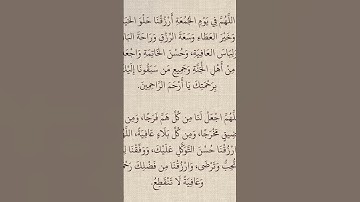 اللَّهُمَّ فِي يَوْمِ الجُمْعَةِ أُرْزُقْنَا حُلْوَ
وَخَيْرَ العَطَاءِ وَسَعَةَ الرِّزْقِ وَرَاحَةَ
وَلِبَاسَ العَافِيَةِ، وَحُسْنَ الخَاتِمَةِ
مِنْ أَهْلِ الجَنَّةِ وَجَمِيعِ مَن سَبَقُونَا
بِرَحْمَتِكَ يَا أَرْحَمَ الرَّاحِمِينَ.
اجْعَلْ لَنَا مِن كُلِّ هَمٍّ فَرَجًا، وَمِن
ضِيقٍ مَخْرَجًا، وَمِن كُلِّ بَلَاءٍ عَافِيَةً،
ارْزُقْنَا حُسْنَ التَّوَكُّلِ عَلَيْكَ، وَوَفِّقْنَا
تُحِبُّ وَتَرْضَى، وَارْزُقْنَا مِن فَضْلِكَ
وَعَافِيَةً لَا تَنْقَطِعُ.